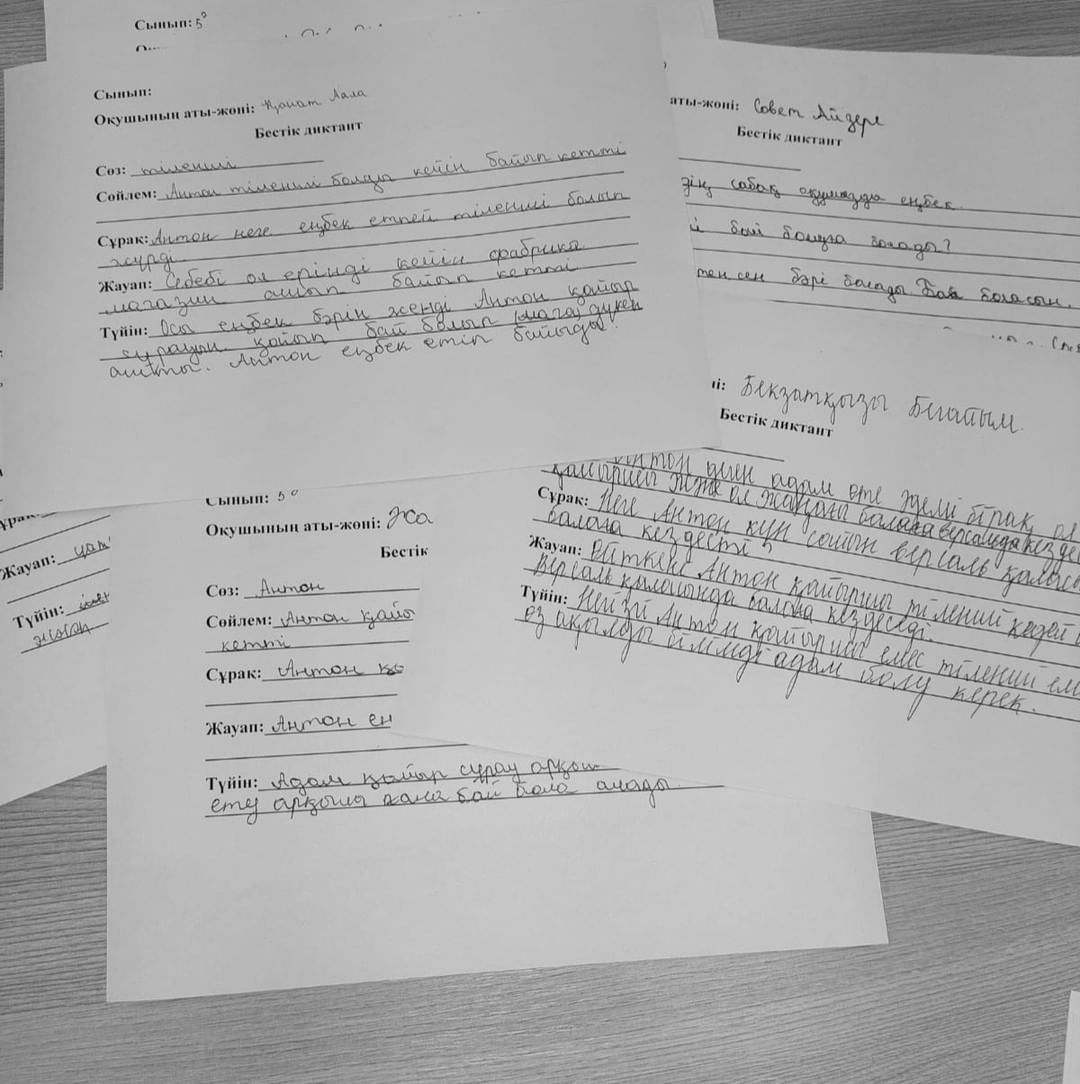 Сынып: 5
Сынып:
Оқушының аты-жөні: Қонат Лала
Бестік диктант
Сөз: тіленші
Сөйлем: Антон тіленші болады кейін байып кетті
Сұрақ: Антон неге еңбек етпей тіленші болып
жүрді
Жауап: Себебі ол ерінді кейін фабрика
магазин ашып байып кетті
Түйін: Осы еңбек бәрін женді Антон қайыр
сұрауын қойып бай болып (мага) дукен
ашты. Антон еңбек етіп байыды.
аты-жөні: Совет Айзере
Бестік диктант
сабақ оқуыңызда еңбек
бай болуға болады?
тен сен бәрі болады. Бай боласын.
ні: Бекзатқызы Бегайым
Бестік диктант
Антон деген адам өте әдемі бірақ ол
қайыршы және ол жаңағы балаға версальда кезде
Сұрақ: Неге Антон күн сайын версаль қаласы
балаға кездесті?
Жауап: Өйткені Антон қайыршы тіленший кедей
Версаль қаласында балаға кездеседі.
Түйін: Негізі Антон қайыршы емес тіленший ем
өз ақылды білімді адам болу керек.
Сынып: 5
Оқушының аты-жөні: Жа
Бестік
Сөз: Антон
Сөйлем: Антон қайы
кетті
Сұрақ: Антон қо
Жауап: Антон ең
Түйін: Адам қайыр сұрау арқыл
ету арқылы ғана бай бола алады.
ұрақ
Жауап:
Түйін: